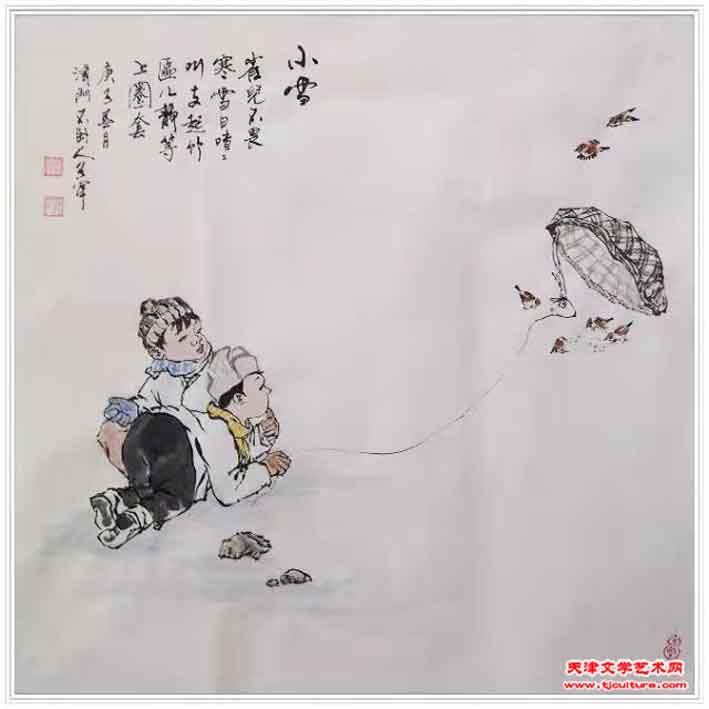 小雪
雀兒不畏
寒雪日喳喳
叫支起竹
匾儿靜等
上圈套
庚子 月
人
天津文学艺术网
www.tjculture.com